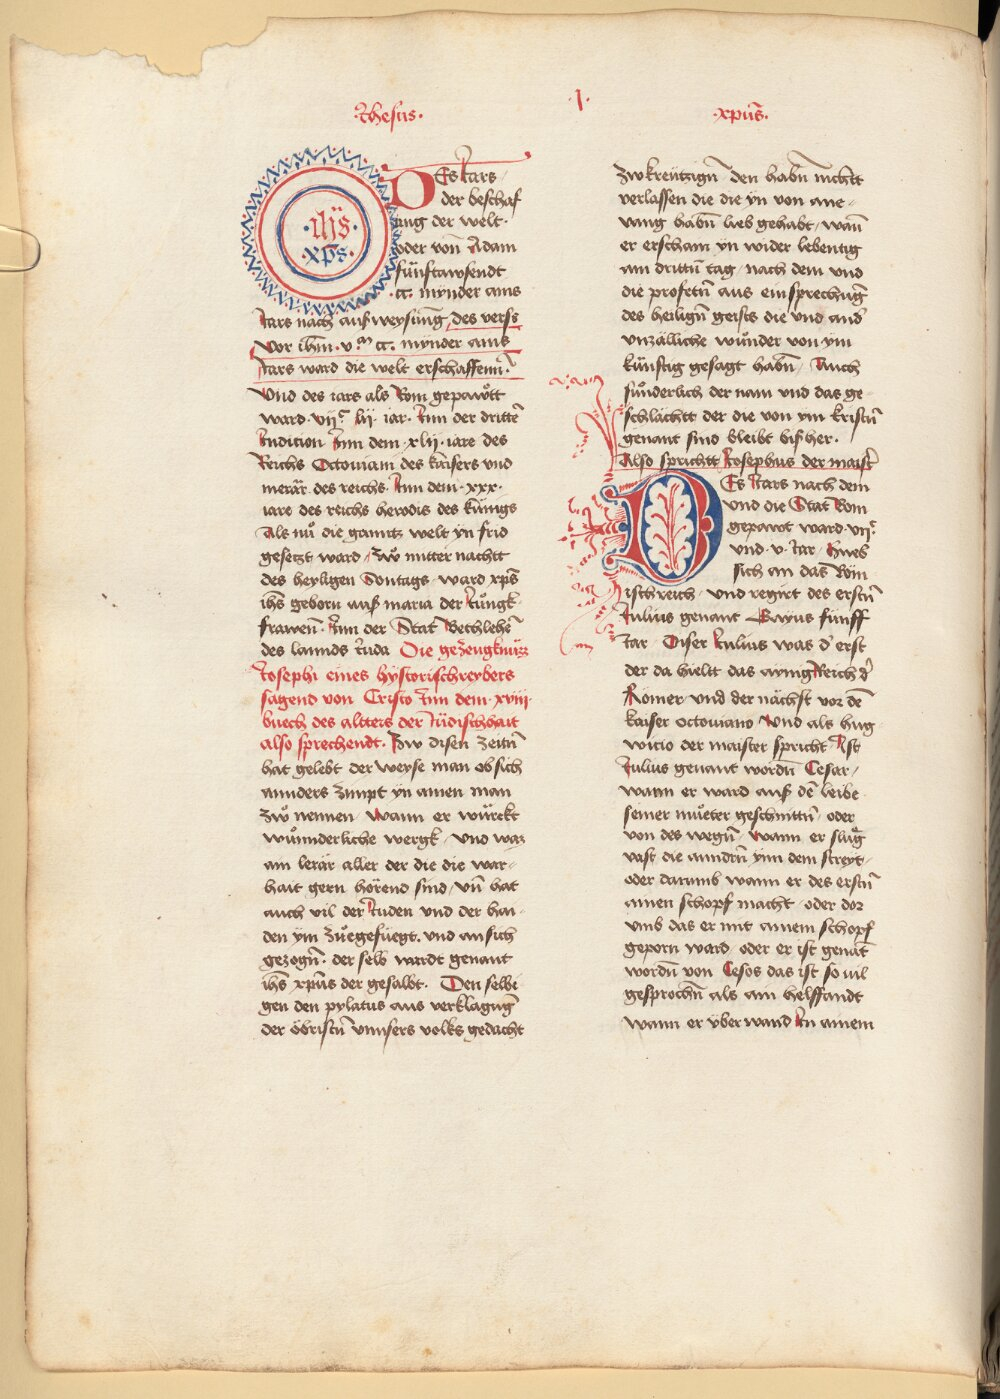 ·Jhesus·
·1·
·xpūs·
·ihs·
·xps·
DEs Jars
der beschaf
ung der welt·
oder von Adam
fünfftawsendt
·cc· mynder ains
Jars nach außweysung des verss
Vor ihm· v·m cc· mynder ains
Jars ward die welt erschaffenn·
Und des iars als Rom gepawtt
ward· vijc· lij· iar· Inn der dritten̄
Indition Inn dem· xlij· iare des
Reichs Octoviani des kaisers vnd
merär des reichs· Inn dem· xxx·
iare des reichs herodis des künigs
Als nů die ganntz welt yn frid
gesetzt ward / Zẘ mitter nachtt
des heyligen Sontags ward xp̄s
ihs̄ geborn auß maria der Jungk
frawen̄· Inn der Stat Bethlehē
des lannds Juda Die gezeugknüzz
Josephi eines hystorischreybers
sagend von Cristo Inn dem· xviij·
buech des altters der Jüdischhait
also sprechendt· Zw disen zeitn̄
hat gelebt der weyse man ob sich
annders zimpt yn ainen man
zẘ nennen Wann er würckt
wůnnderliche wergk / vnd waz
ain lerär aller der die die war-
hait gern hörend sind / vn̄ hat
auch vil der Juden vnd der hai-
den ym zůegefüegt· vnd an sich
gezogn̄· der selb wardt genant
ihs̄ xpūs der gesalbt· Den selbi
gen den pylatus aus verklagūg
der öbristn̄ vnnsers volks gedacht
zw kreützign̄ / den habn̄ nichtt
verlassen die die yn von ane-
uang habn̄ lieb gehabt / wan̄
er erschain yn wider lebentig
am drittn̄ tag / nach dem vnd
die profetn̄ aus einsprechūg
des heilign̄ geists die vnd and̄
vnzälliche wunder von ym
künftig gesagt habn̄ / Auch
sůnderlich der nam vnd das ge-
schlächtt der die von ym kristn̄
genant sind bleibt biß her·
Also sprichtt Josephus der maist̄
DEs Jars nach dem
vnd die Stat Rom
gepawt ward· vijc
vnd· v· Jar / Hueb
sich an das Röm
isch reich / vnd regirt des erstn̄
Julius genant Gayus fünff
Jar / Diser Julius was d̄ erst
der da hieltt das aynig Reich d̄
Römer vnd der nächst vor dē
kaiser octoviano Vnd als hug
wicio der maister spricht Ist
Julius genant wordn̄ Cesar /
wann er ward auß dē leibe
seiner můeter geschnittn̄ / oder
von des wegn̄ / Wann er slůg
vast die anndrn̄ ynn dem streyt /
oder darumb wann er des erstn̄
ainen schopf macht / oder dor
vmb das er mit ainem schopf
geporn ward / oder er ist genāt
wordn̄ von Cesos das ist so vil
gesprochn̄ als ain helffandt
wann er vberwand In ainem